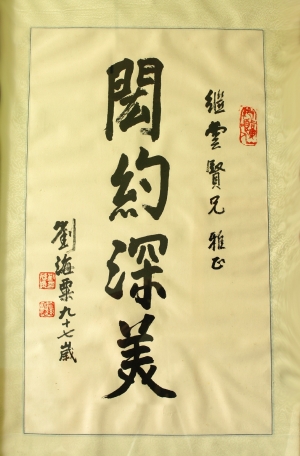 继雲賢兄雅正
閎約深美
劉海粟九十七歲